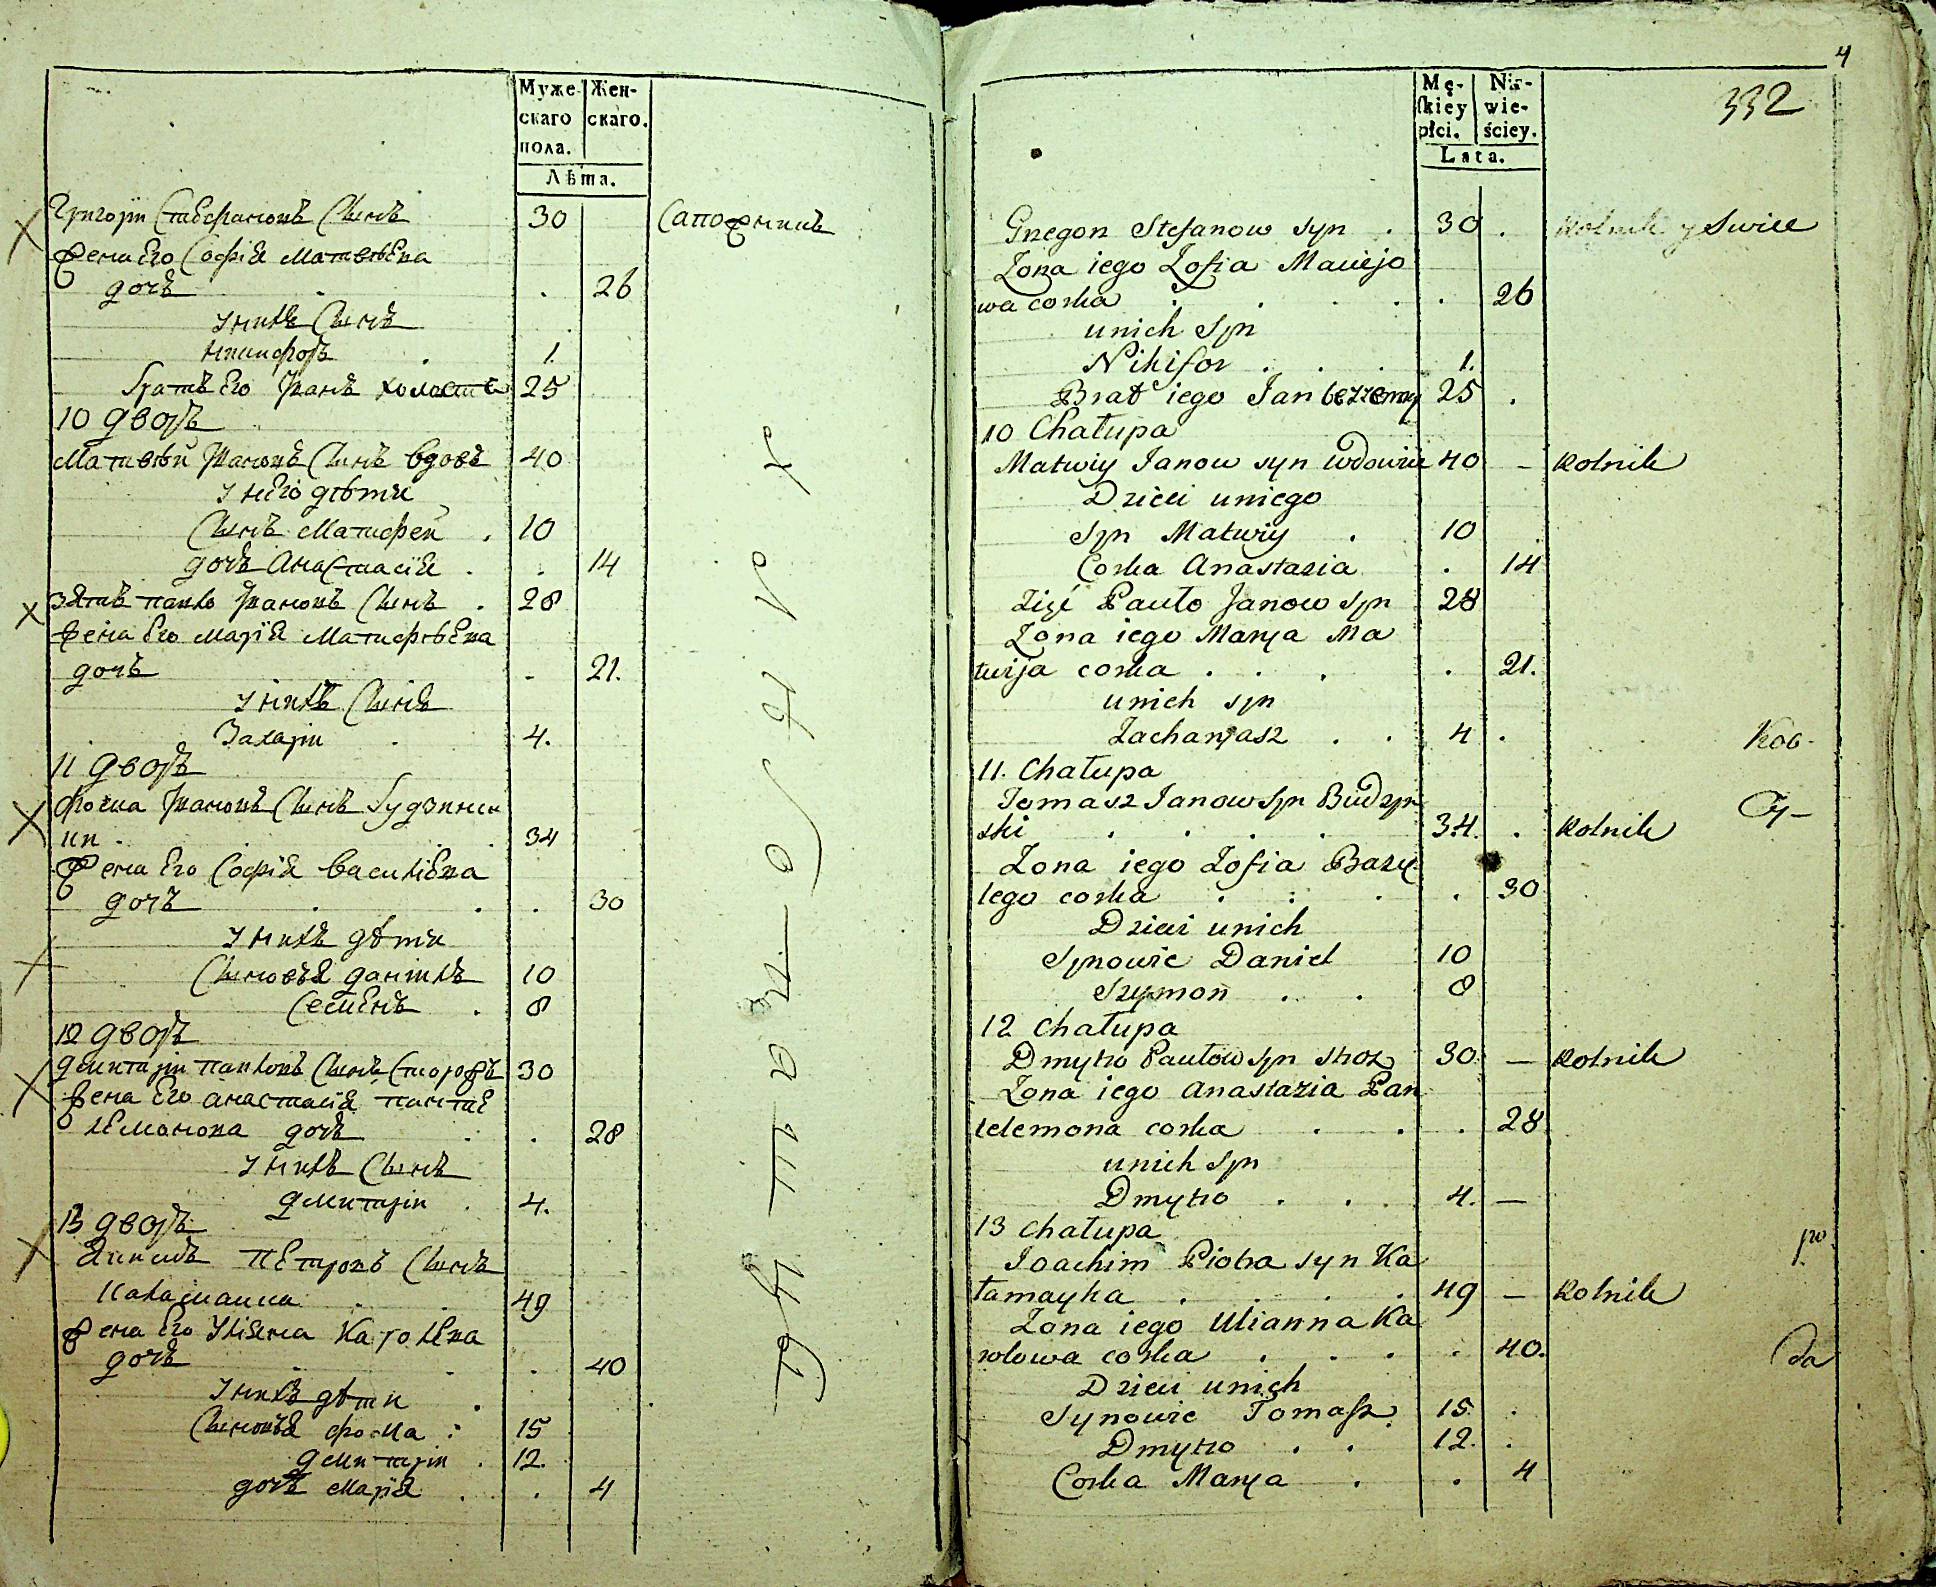 Муже-
скаго
пола.
Жен-
скаго.
Лѣта.
Григорїи Стефановъ Сынъ 30 Сапожникъ
жена Его Софїя Матвѣева
дочь . 26
у нихъ Сынъ
Никифоръ . 1.
братъ Его Иванъ холостъ 25
10 дворъ
Матвѣй Ивановъ Сынъ вдовъ 40
у него дѣти
Сынъ Матфей . 10
дочь Анастасїя . . 14
зять павло Ивановъ Сынъ . 28
жена Его марїя Матфѣева
дочь . 21.
у нихъ Сынъ
Захарїи . 4.
11 дворъ
фома Ивановъ Сынъ будзинс
ки . . 34
жена Его Софїя василїева
дочь . . . 30
у нихъ дѣти
Сыновья данїилъ 10
Семенъ . 8
12 дворъ
дмитрїи павловъ Сынъ Сторожъ 30
жена Его анастасїя панте
лемонова дочь . . 28
у нихъ Сынъ
дмитрїи . 4.
13 дворъ
Якимъ Петровъ Сынъ
Каламайка . . 49
жена Его Улїяна Каролева
дочь . . . 40
у нихъ дѣти .
Сыновья фома : 15
дмитрїи . 12.
дочь марїя . . 4
4
332
Mę-
skiey
płci.
Nie-
wie-
ściey.
Lata.
Gregori Stefanow syn . 30 . Rolnik y Swiec
Zona iego Zofia Maciejo
wa corka . . . . . 26
unich Syn
Nikifor . . . 1.
Brat iego Jan bezżenny 25 .
10 Chałupa
Matwiy Janow syn wdowiec 40 – Rolnik
Dzieci uniego
Syn Matwiy . 10
Corka Anastazia . 14
Zięć Pawło Janow Syn 28
Zona iego Marya Ma
twija corka . . . . 21.
unich syn
Zacharyasz . . 4 .
Kob-
11. Chałupa
Tomasz Janow Syn Budzyn
ski . . . . . 34. . Rolnik
Zona iego Zofia Bazy
lego corka . : . . 30
Dzieci unich
Synowie Daniel 10
Szymon . . 8
12 Chałupa
Dmytro Pawłow syn stroz 30 – Rolnik
Zona iego Anastazia Pan
telemona corka . . . 28
unich Syn
Dmytro . . . 4. –
13 Chałupa
Joachim Piotra syn Ka
łamayka . . . . . 49 – Rolnik
Zona iego Ulianna Ka
rolowa corka . . . . 40.
Dzieci unich
Synowie Tomasz 15 .
Dmytro . . 12. .
Corka Marya . . 4